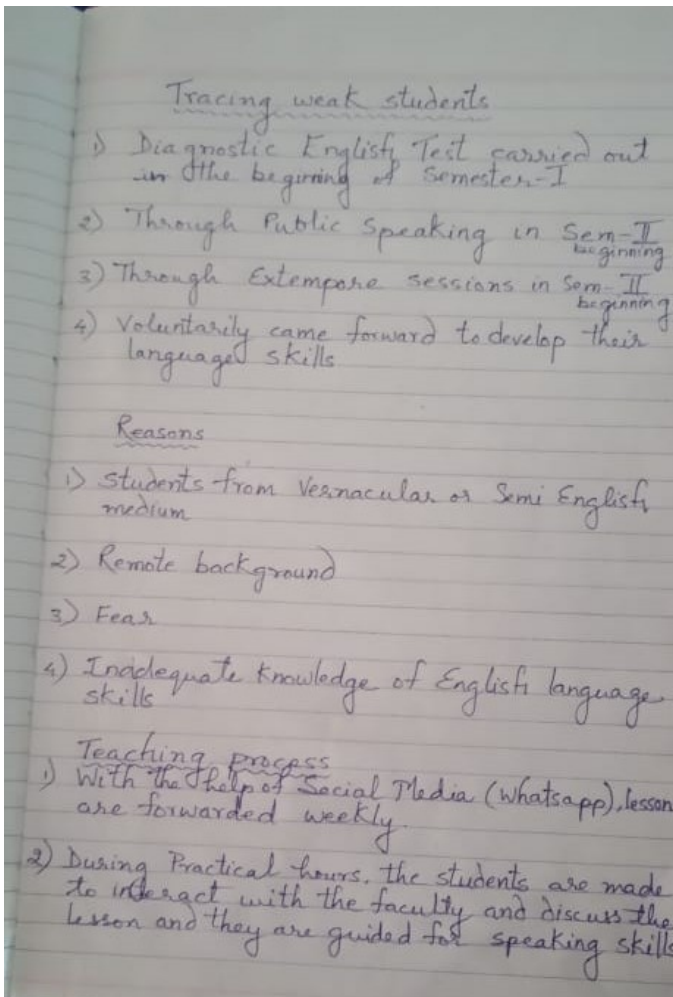 Tracing weak students
1) Diagnostic English Test carried out
in the beginning of Semester-I
2) Through Public Speaking in Sem-II
beginning
3) Through Extempore sessions in Sem-II
beginning
4) Voluntarily came forward to develop their
language skills
Reasons
1) Students from Vernacular or Semi English
medium
2) Remote background
3) Fear
4) Inadequate knowledge of English language
skills
Teaching process
1) With the help of Social Media (Whatsapp), lesson
are forwarded weekly.
2) During Practical hours, the students are made
to interact with the faculty and discuss the
lesson and they are guided for speaking skills